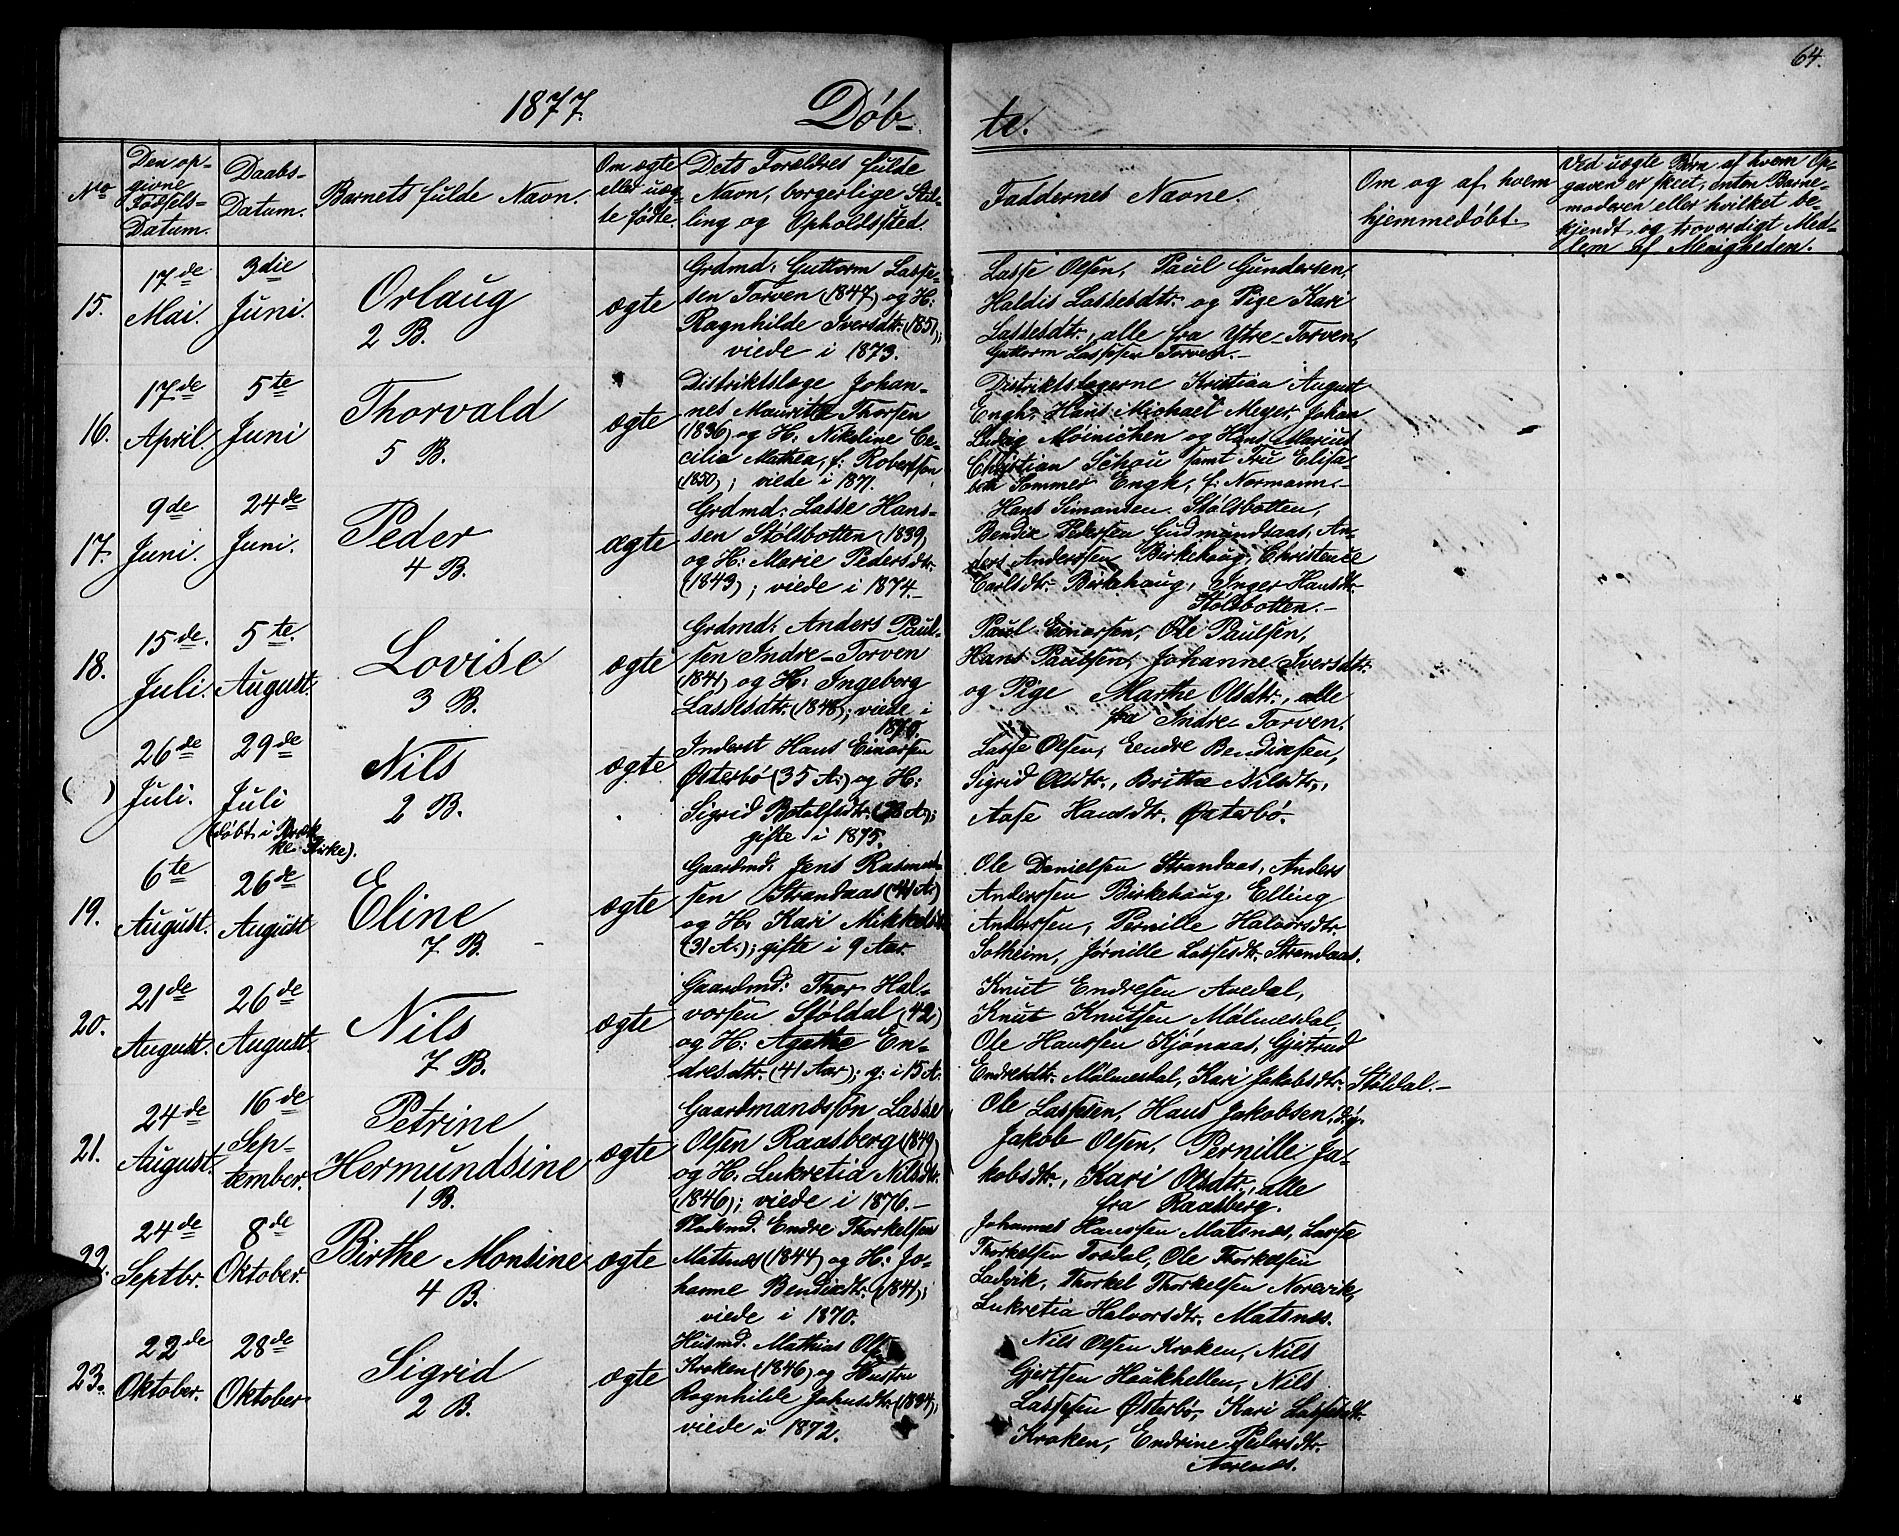 64.
1877. Døbte.
No
Den opgivne Fødsels-Datum.
Daabs-Datum.
Barnets fulde Navn.
Om ægte eller uægte fødte.
Dets Forældres fulde Navn, borgerlige Stilling og Opholdssted.
Faddernes Navne.
Om og af hvem hjemmedøbt.
Ved uægte Børn af hvem Opgaven er skeet, enten Barnemoderen eller hvilket bekjendt og troværdigt Medlem af Menigheden.
15.
17de Mai.
3die Juni.
Orlaug
2 B.
ægte
Grdmd: Guttorm Lasse-
sen Torven (1847) og H:
Ragnhilde Iversdtr. (1851);
viede i 1873.
Lasse Olsen, Paul Gundersen,
Haldis Lassesdtr. og Pige Kari
Lassesdtr., alle fra Ytre-Torven,
Guttorm Lassesen Torven.-
16.
17de April.
5te Juni
Thorvald
5 B.
ægte
Distriktslæge Johan-
nes Mauritz Thorsen
(1836) og H: Nikoline Ce-
cilia Mathea, f: Robertson
(1850); viede i 1871.
Distriktslægerne Kristian August
Engh, Hans Michael Meyer, Johan
Ludvig Møinichen og Hans Marius
Christian Schou samt Fru Elisa-
beth Sommer Engh, f: Normann.-
17.
9de Juni.
24de Juni.
Peder
4 B.
ægte
Grdmd: Lasse Hans-
sen Stølsbotten (1839)
og H: Marie Pedersdtr.
(1843); viede i 1874.-
Hans Simonsen Stølsbotten,
Bendix Pedersen Gudmundsaas, An-
ders Anderssen Birkehaug, Christence
Carlsdtr. Birkehaug, Inger Hansdtr.
Stølsbotten.-
18.
15de Juli.
5te August.
Lovise
3 B.
ægte
Grdmd: Anders Paul-
sen Indre-Torven
(1841) og H: Ingeborg
Lassesdtr. (1848); viede i
1870.
Paul Einarsen, Ole Paulsen,
Hans Paulsen, Johanne Iversdtr.
og Pige Marthe Olsdtr., alle
fra Indre Torven.
( )
26de Juli.
29de Juli
(døbt i Brække Kirke).
Nils
2 B.
ægte
Inderst Hans Einarsen
Østerbø (35 A.) og H:
Sigrid Botolfsdtr.
gifte i 1875.
Lasse Olsen, Endre Bendixsen,
Sigrid Olsdtr., Britha Nilsdtr.,
Aase Hansdtr. Østerbø.
19.
6te August.
26de August
Eline
7 B.
ægte
Gaardmd: Jens Rasmus-
sen Strandaas (41 A.)
og H: Kari Mikkelsdtr.
(31 A.); gifte i 9 Aar.
Ole Danielsen Strandaas, Anders
Anderssen Birkehaug, Elling
Anderssen, Pernille Halvorsdtr.
Solheim, Jørnille Lassesdtr. Strandaas.
20.
21de August.
26de August.
Nils
7 B.
ægte
Gaardmd: Thor Hal-
vorsen Støldal (42)
og H: Agathe En-
dresdtr. (41 Aar); g: i 15 A.
Knut Endresen Aredal,
Knut Knutsen Målmesdal,
Ole Hanssen Kjønaas, Gjertrud
Endresdtr. Målmesdal, Kari Jakobsdtr. Støldal.-
21.
24de August.
16de September.
Petrine
Hermundsine
1 B.
ægte
Gaardmandssøn Lasse
Olsen Raasberg (1849)
og H: Lukretia Nilsdtr.
(1846); viede i 1876.-
Ole Lassesen, Hans Jakobsen,
Jakob Olsen, Pernille Ja-
kobsdtr., Kari Olsdtr., alle
fra Raasberg.
22.
24de Septbr.
8de Oktober.
Birthe Monsine
4 B.
ægte
Pladsmd. Endre Thorkelsen
Matsnes (1844) og H: Jo-
hanne Bendixdtr. (1841);
viede i 1870.
Johannes Hanssen Matsnes, Lasse
Thorkelsen Torsdal, Ole Thorkelsen
Ladvik, Thorkel Thorkelsen Norevik,
Lukretia Halvorsdtr. Matsnes.
23.
22de Oktober.
28de Oktober
Sigrid
2 B.
ægte
Husmd. Mathias Olsen
Kroken (1846) og Hustru
Ragnhilde Johnsdtr. (1834);
viede i 1872.
Nils Olsen Kroken, Nils
Gjertsen Heukhellen, Nils
Lassesen Østerbø, Kari Lassesdtr.
Kroken, Endrine Pedersdtr.